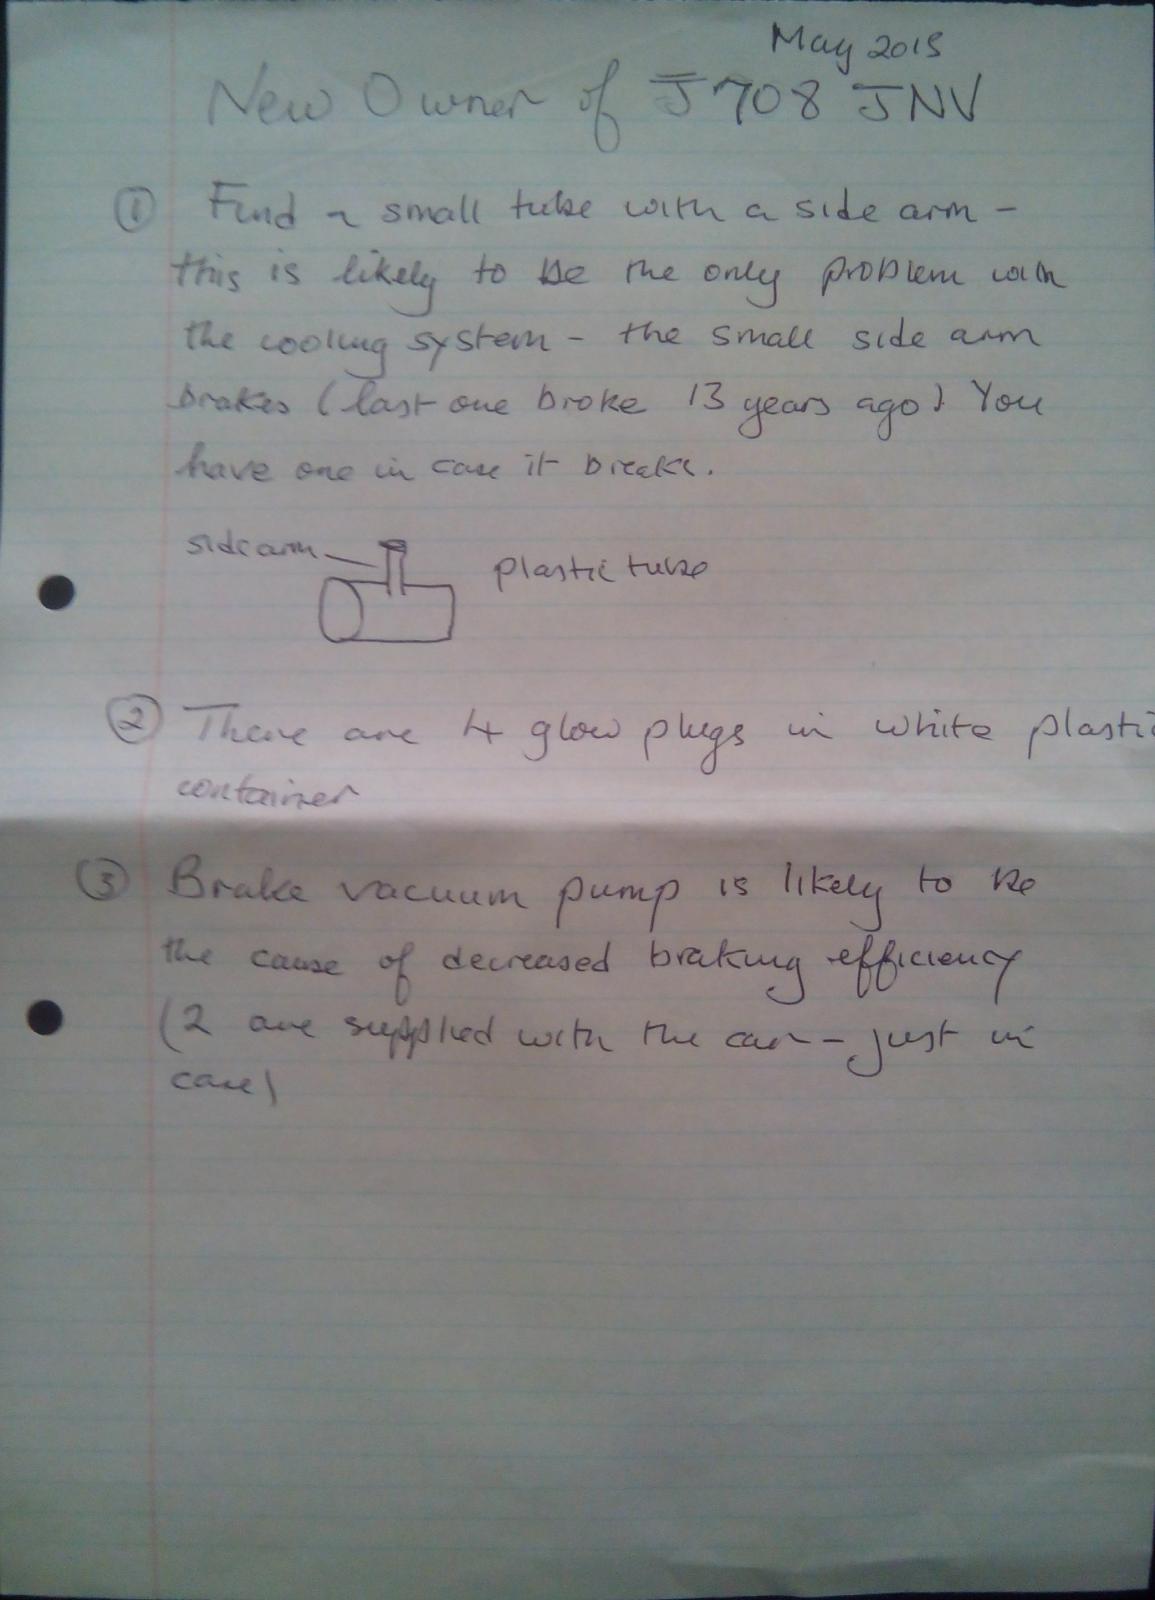 May 2015
New Owner of J708 JNV
① Find a small tube with a side arm -
this is likely to be the only problem with
the cooling system - the small side arm
brakes (last one broke 13 years ago). You
have one in case it breaks.
side arm
plastic tube
② There are 4 glow plugs in white plastic
container
③ Brake vacuum pump is likely to be
the cause of decreased braking efficiency
(2 are supplied with the car - just in
case)